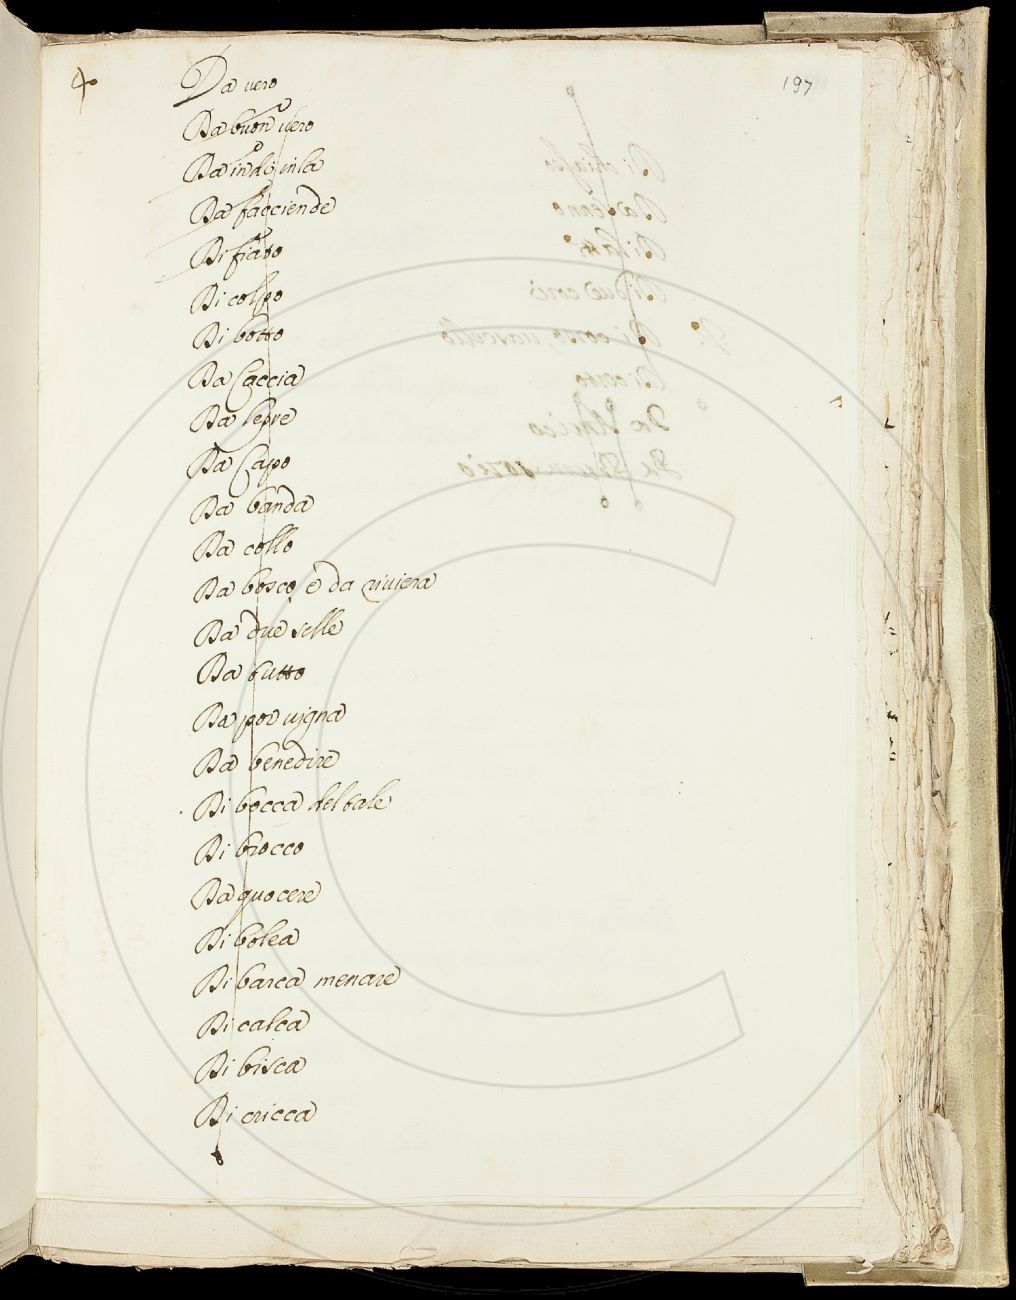 4
197
Da vero
Da buon vero
Da indi in la
Da facciende
Di fiato
Di colpo
Di botto
Da Caccia
Da lepre
Da Capo
Da banda
Da collo
Da bosco e da riviera
Da due selle
Da butto
Da por vigna
Da benedire
Di bocca del sale
Di brocco
Da quocere
Di bolea
Di barca menare
Di calca
Di bisca
Di cricca